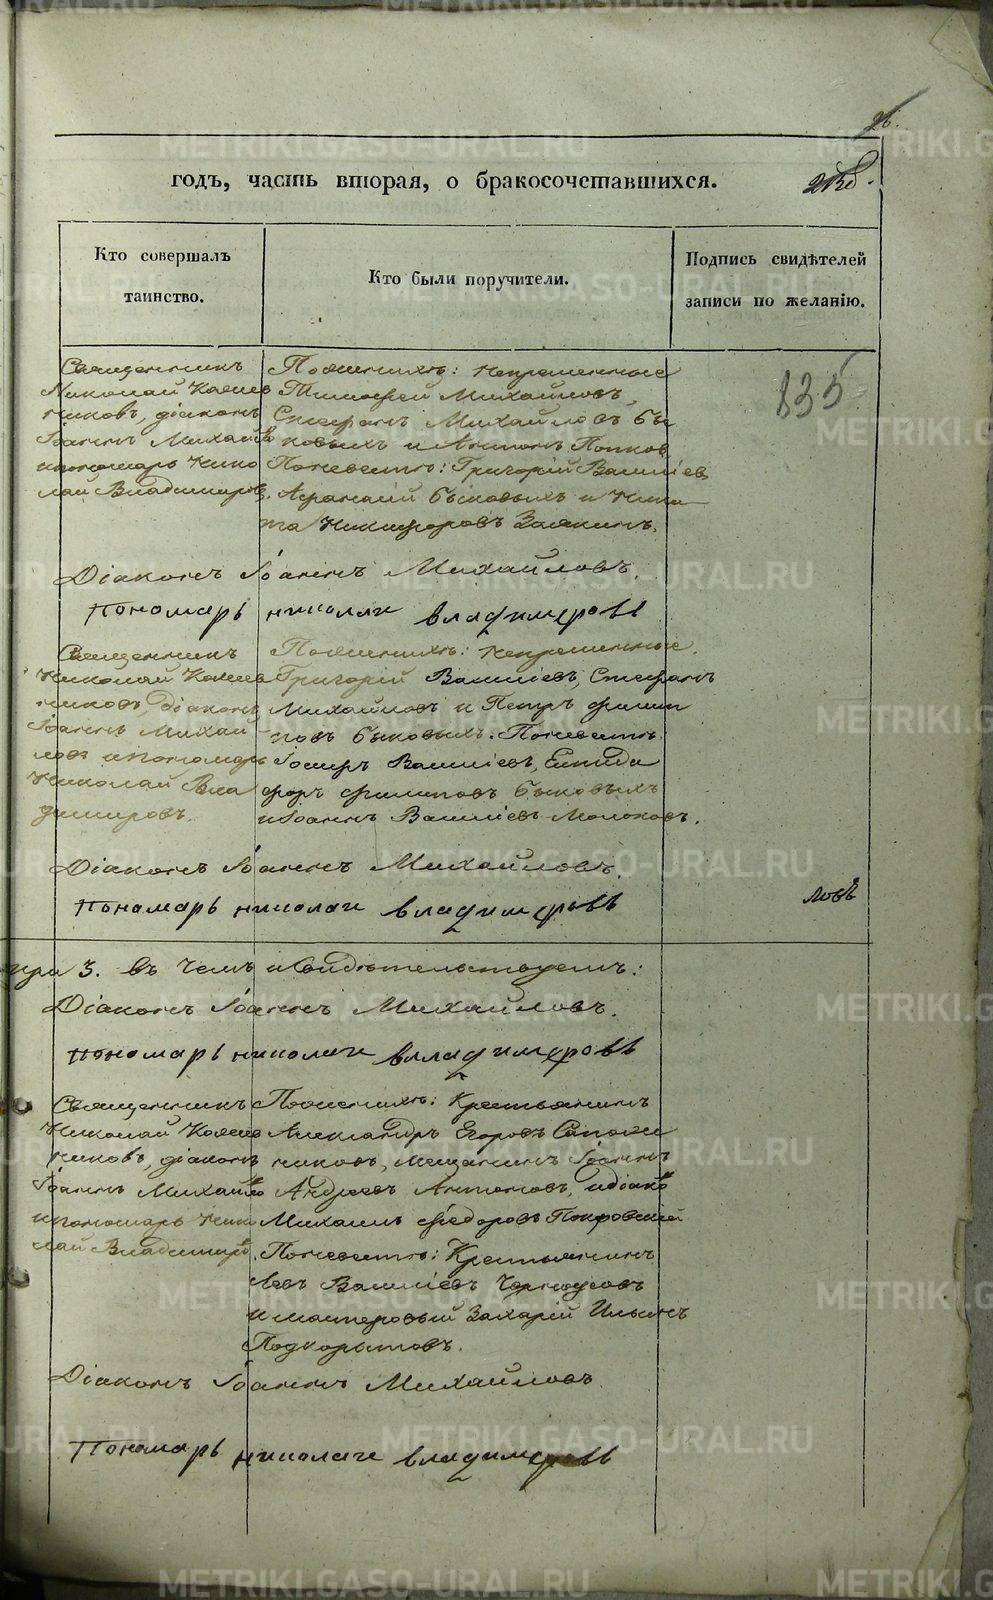 METRIKI.GASO-URAL.RU
годъ, часть вторая, о бракосочетавшихся.
Кто совершалъ
таинство.
Кто были поручители.
Подпись свидѣтелей
записи по желанію.
835
Священникъ
Николай
никовъ, діаконъ
Іоаннъ Михайло
ипономарь Нико
лай Владимиров.
По женихѣ: Непременные
Тимофей Михайловъ,
Стефанъ Михайловъ Бы
ковыхъ и Антонъ Попков
По невестѣ: Григорій Василіев,
Афанасій Быковыхъ и Ники
та Никифоровъ Заякинъ.
Діаконъ Іоаннъ Михайловъ.
Пономарь николаи владимеровъ
Священникъ
Николай
никовъ, діаконъ
Іоаннъ Михай
ловъ ипономарь
Николай Вла
димировъ.
По женихѣ: Непременные
Григорій Василіевъ, Стефанъ
Михайловъ и Петръ Филип
повъ Быковыхъ. По невестѣ
Іосифъ Василіевъ, Епиди
форъ Филиповъ Быковыхъ
и Іоаннъ Василіевъ Молоковъ.
Діаконъ Іоаннъ Михайловъ.
Пономарь николаи владимеровъ
ловъ
при 3. въ чемъ и свидѣтельствуемъ:
Діаконъ Іоаннъ Михайловъ.
Пономарь николаи владимеровъ
Священникъ
Николай
никовъ, діаконъ
Іоаннъ Михайло
ипономарь Нико
лай Владимиро.
По женихѣ: Крестьянинъ
Александръ Егоровъ Сапож
никовъ, мещанинъ Іоаннъ
Андреевъ Антоновъ, идіако
Михаилъ Федоровъ Покровскій
По невестѣ: Крестьянинъ
Левъ Василіевъ Черноусовъ
и мастеровый Захарій Ильинъ
Подкорытовъ.
Діаконъ Іоаннъ Михайловъ
Пономарь николаи владимеровъ